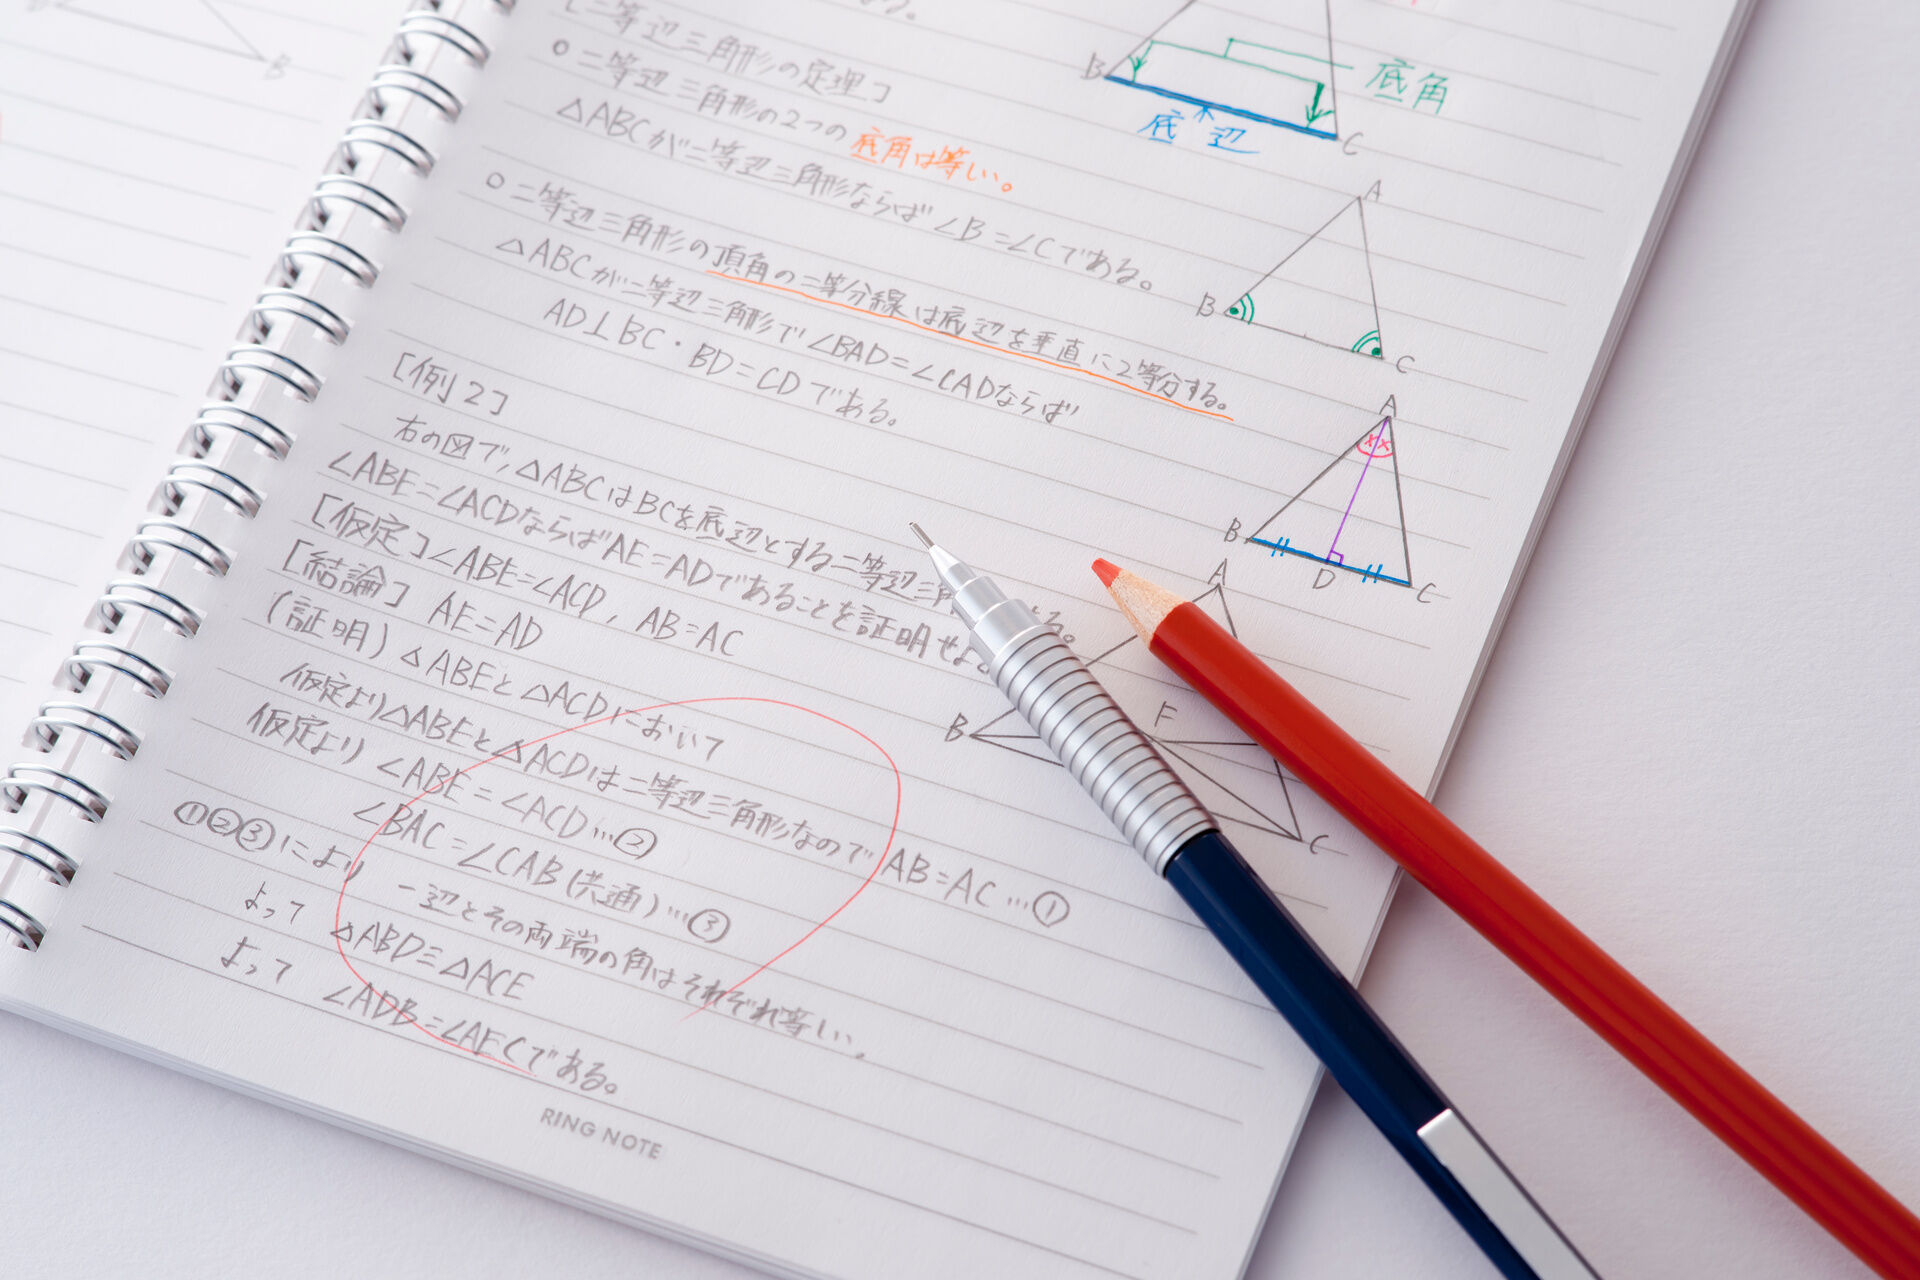 [二等辺三角形の定理]
○二等辺三角形の2つの底角は等しい。
△ABCが二等辺三角形ならば∠B=∠Cである。
○二等辺三角形の頂角の二等分線は底辺を垂直に2等分する。
△ABCが二等辺三角形で∠BAD=∠CADならば
AD⊥BC・BD=CDである。
[例2]
右の図で,△ABCはBCを底辺とする二等辺三
∠ABE=∠ACDならばAE=ADであることを証明せよ
[仮定]∠ABE=∠ACD, AB=AC
[結論] AE=AD
(証明) △ABEと△ACDにおいて
仮定より△ABEと△ACDは二等辺三角形なので AB=AC…①
仮定より ∠ABE=∠ACD…②
∠BAC=∠CAB(共通)…③
①②③により 一辺とその両端の角はそれぞれ等しい。
よって △ABD≡△ACE
よって ∠ADB=∠AECである。
RING NOTE
B
C
底角
底辺
A
B
C
A
B
D
C
A
B
F
C
B